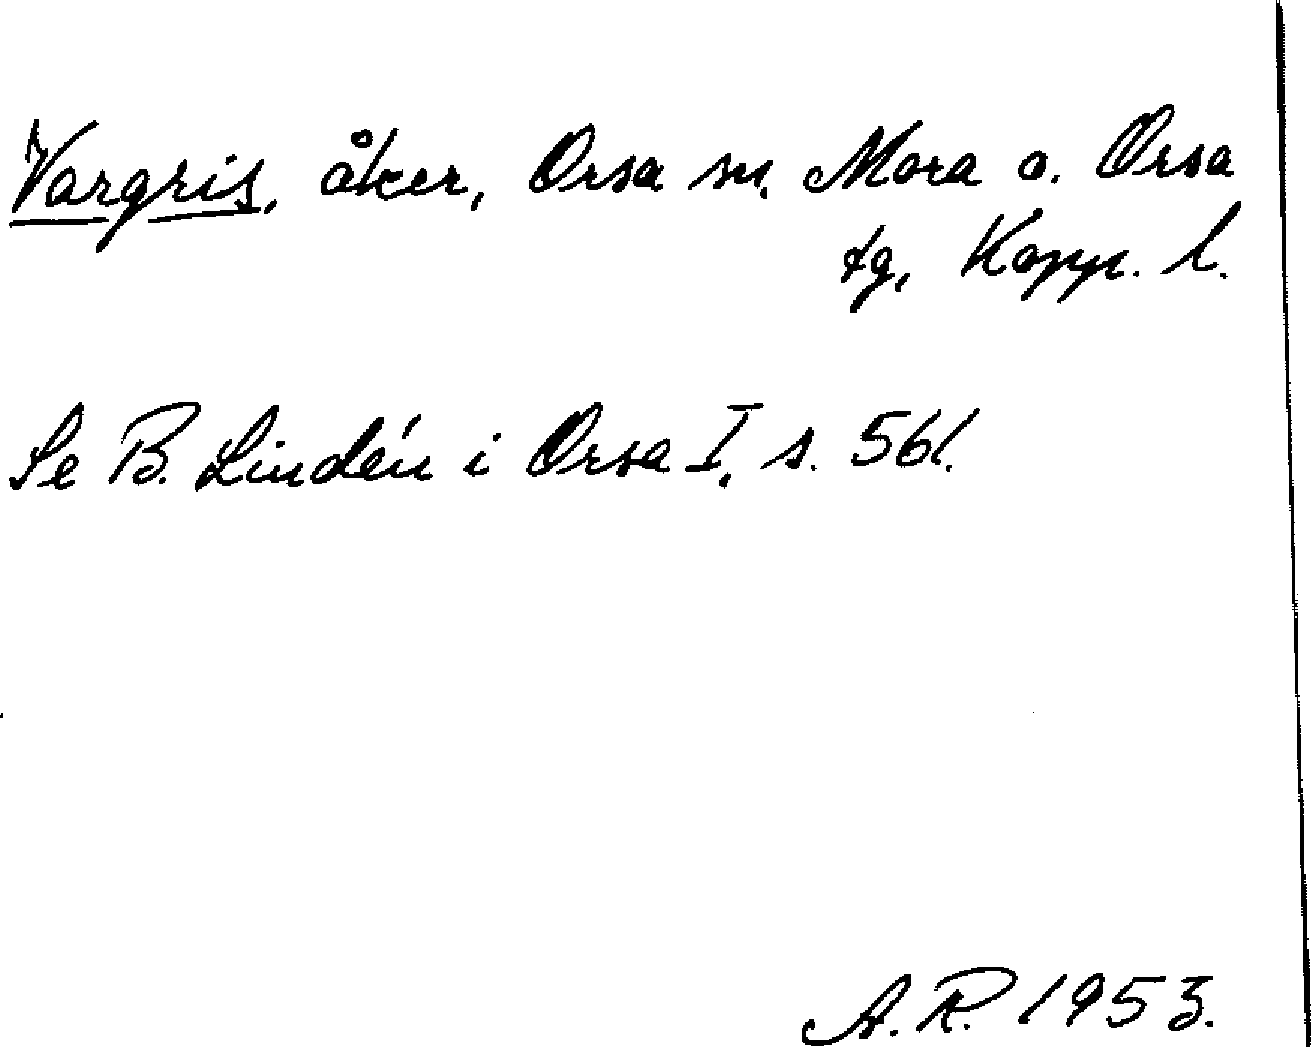 Vargris, åker, Orsa sn, Mora o. Orsa
tg, Kopp. l.
Se B. Lindén i Orsa I, s. 561.
A. R. 1953.